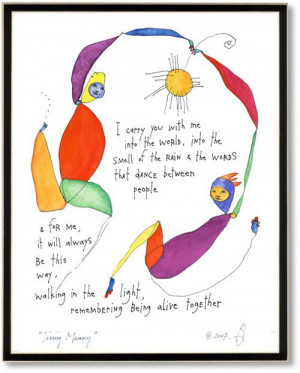 I carry you with me
into the world, into the
smell of the rain & the words
that dance between
people
& for me,
it will always
be this
way,
walking in the light,
remembering being alive together
© 2007